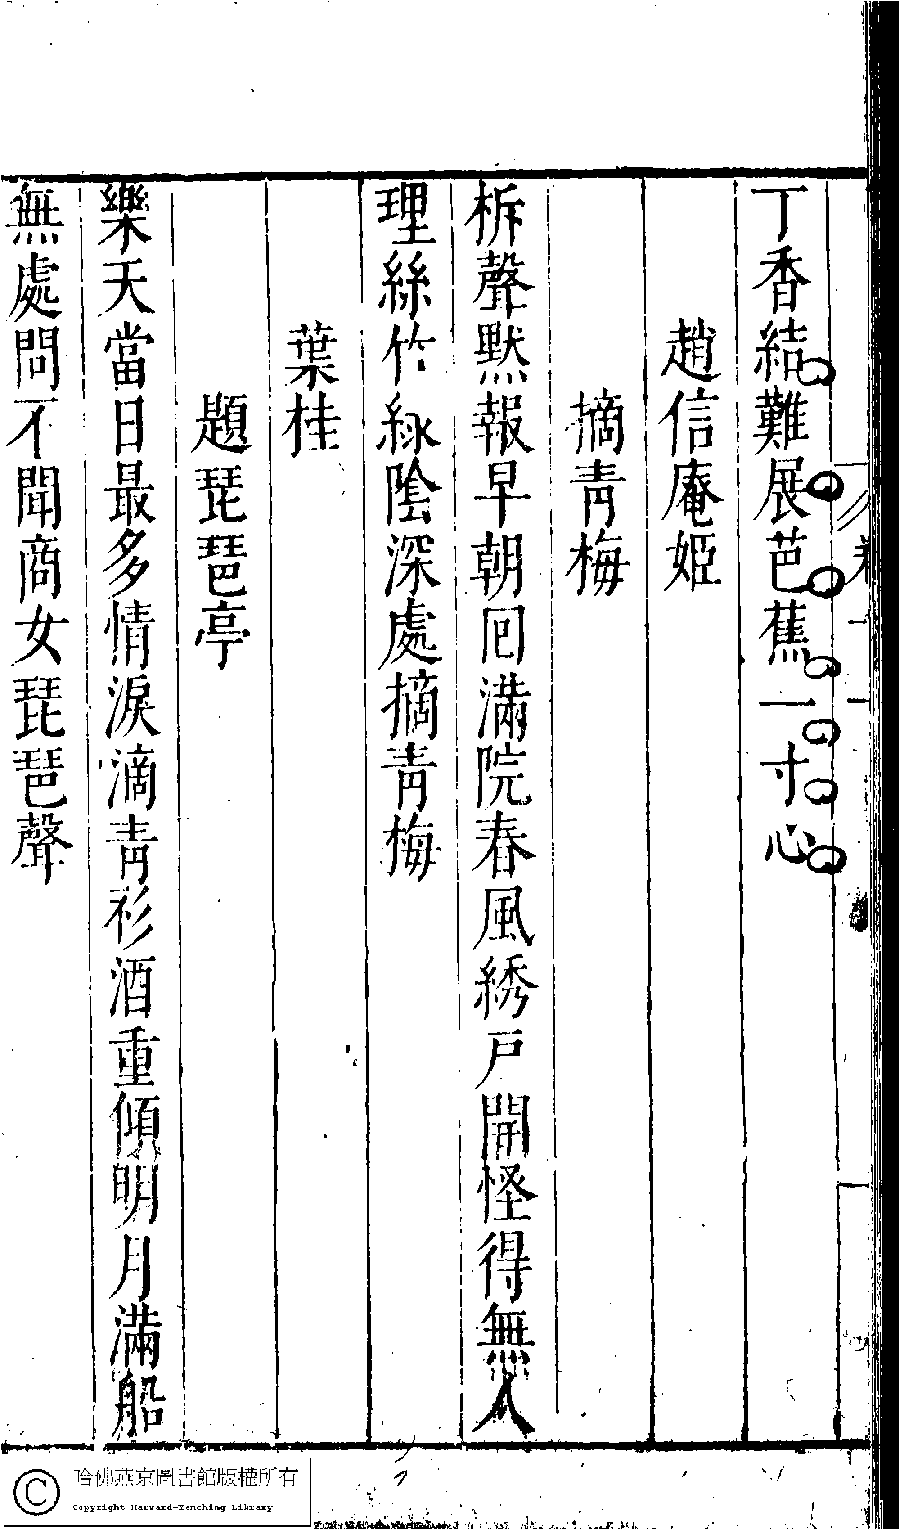 丁香結難展芭蕉一寸心
趙信庵姬
摘青梅
柝聲默報早朝回滿院春風綉戶開怪得無人
理絲竹綠陰深處摘青梅
葉桂
題琵琶亭
樂天當日最多情淚滴青衫酒重傾明月滿船
無處問不聞商女琵琶聲
哈佛燕京圖書館版權所有
Copyright Harvard-Yenching Library